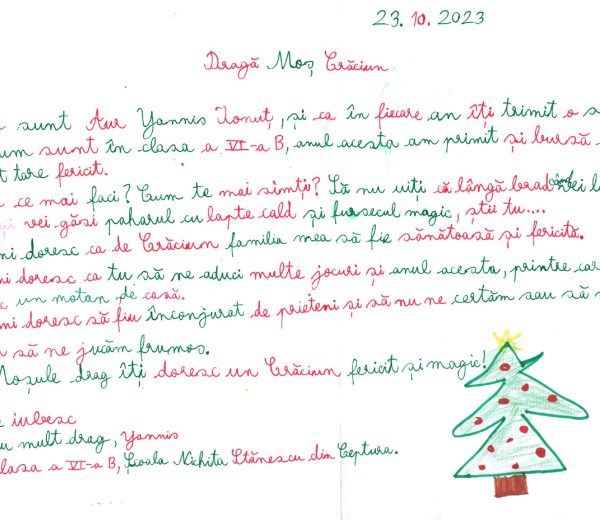 23.10.2023
Dragă Moș Crăciun
sunt Aur Yannis Ionuț, și ca în fiecare an îți trimit o s
um sunt în clasa a VI-a B, anul acesta am primit și bursă
t tare fericit.
ce mai faci? Cum te mai simții? Să nu uiți că lângă brad când vei l
vei găsi paharul cu lapte cald și fursecul magic, știi tu....
mi doresc ca de Crăciun familia mea să fie sănătoasă și fericită.
mi doresc ca tu să ne aduci multe jocuri și anul acesta, printre car
c un motan de casă.
mi doresc să fiu înconjurat de prieteni și să nu ne certăm sau să
să ne jucăm frumos.
Moșule drag îți doresc un Crăciun fericit și magic!
e iubesc
u mult drag, Yannis
lasa a VI-a B, Școala Nichita Stănescu din Ceptura.